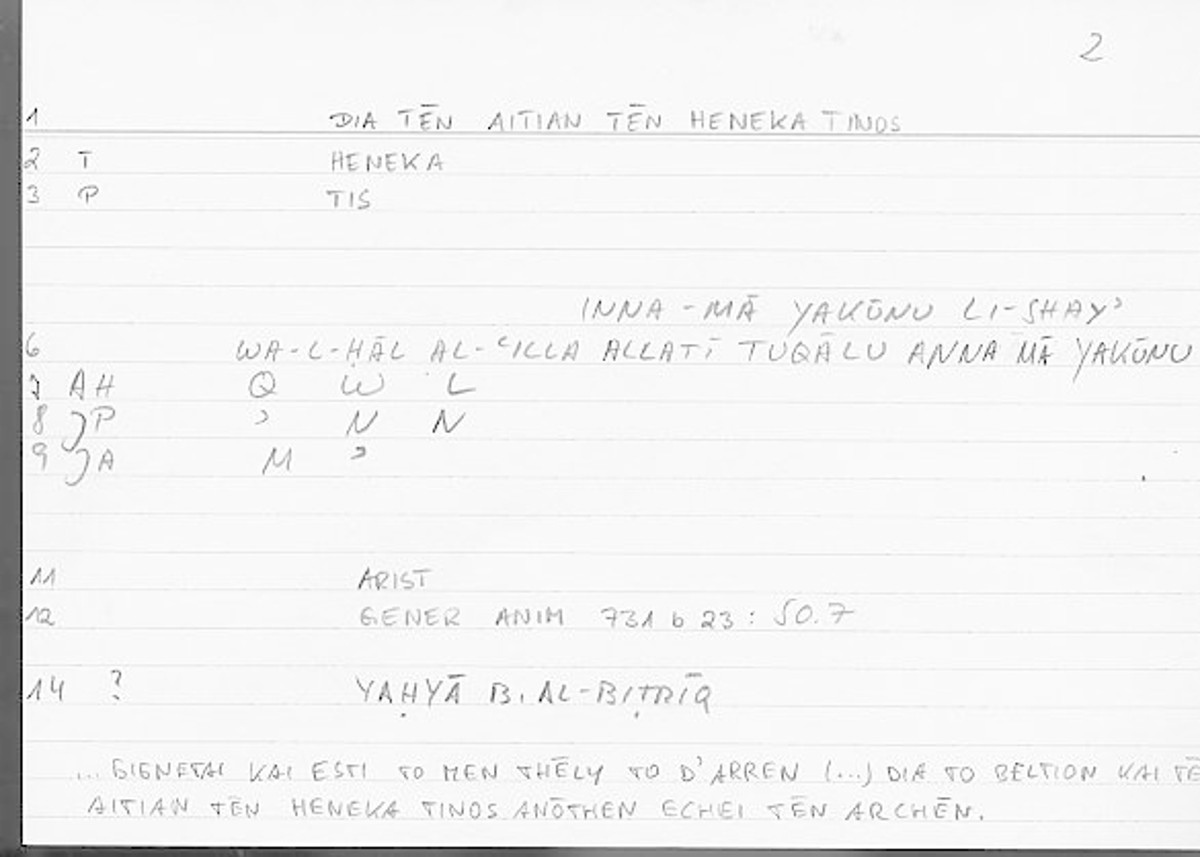 2
1 DIA TĒN AITIAN TĒN HENEKA TINOS
2 T HENEKA
3 P TIS
INNA-MĀ YAKŪNU LI-SHAYʾ
6 WA-L-ḤĀL AL-ʿILLA ALLATĪ TUQĀLU ANNA MĀ YAKŪNU
7 AH Q W L
8 JP ʾ N N
9 JA M ʾ
11 ARIST
12 GENER ANIM 731 b 23 : 50.7
14 ? YAḤYĀ B. AL-BIṬRĪQ
... GIGNETAI KAI ESTI TO MEN THĒLY TO D'ARREN (...) DIA TO BELTION KAI TĒ
AITIAN TĒN HENEKA TINOS ANŌTHEN ECHEI TĒN ARCHĒN.